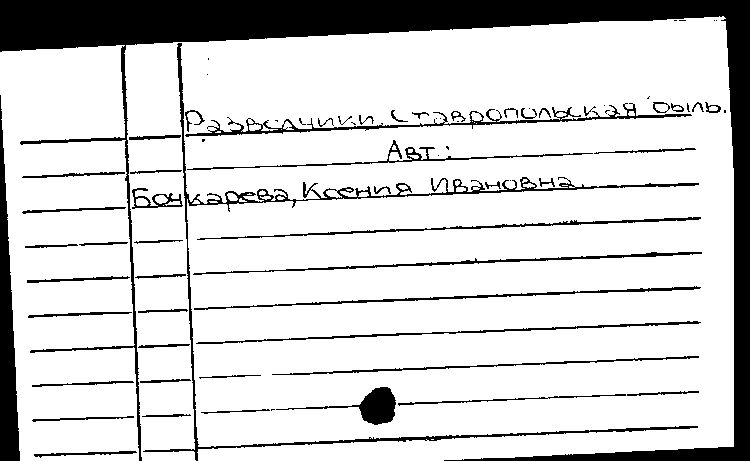 Разведчики. Ставропольская быль.
Авт.:
Бочкарева, Ксения Ивановна.